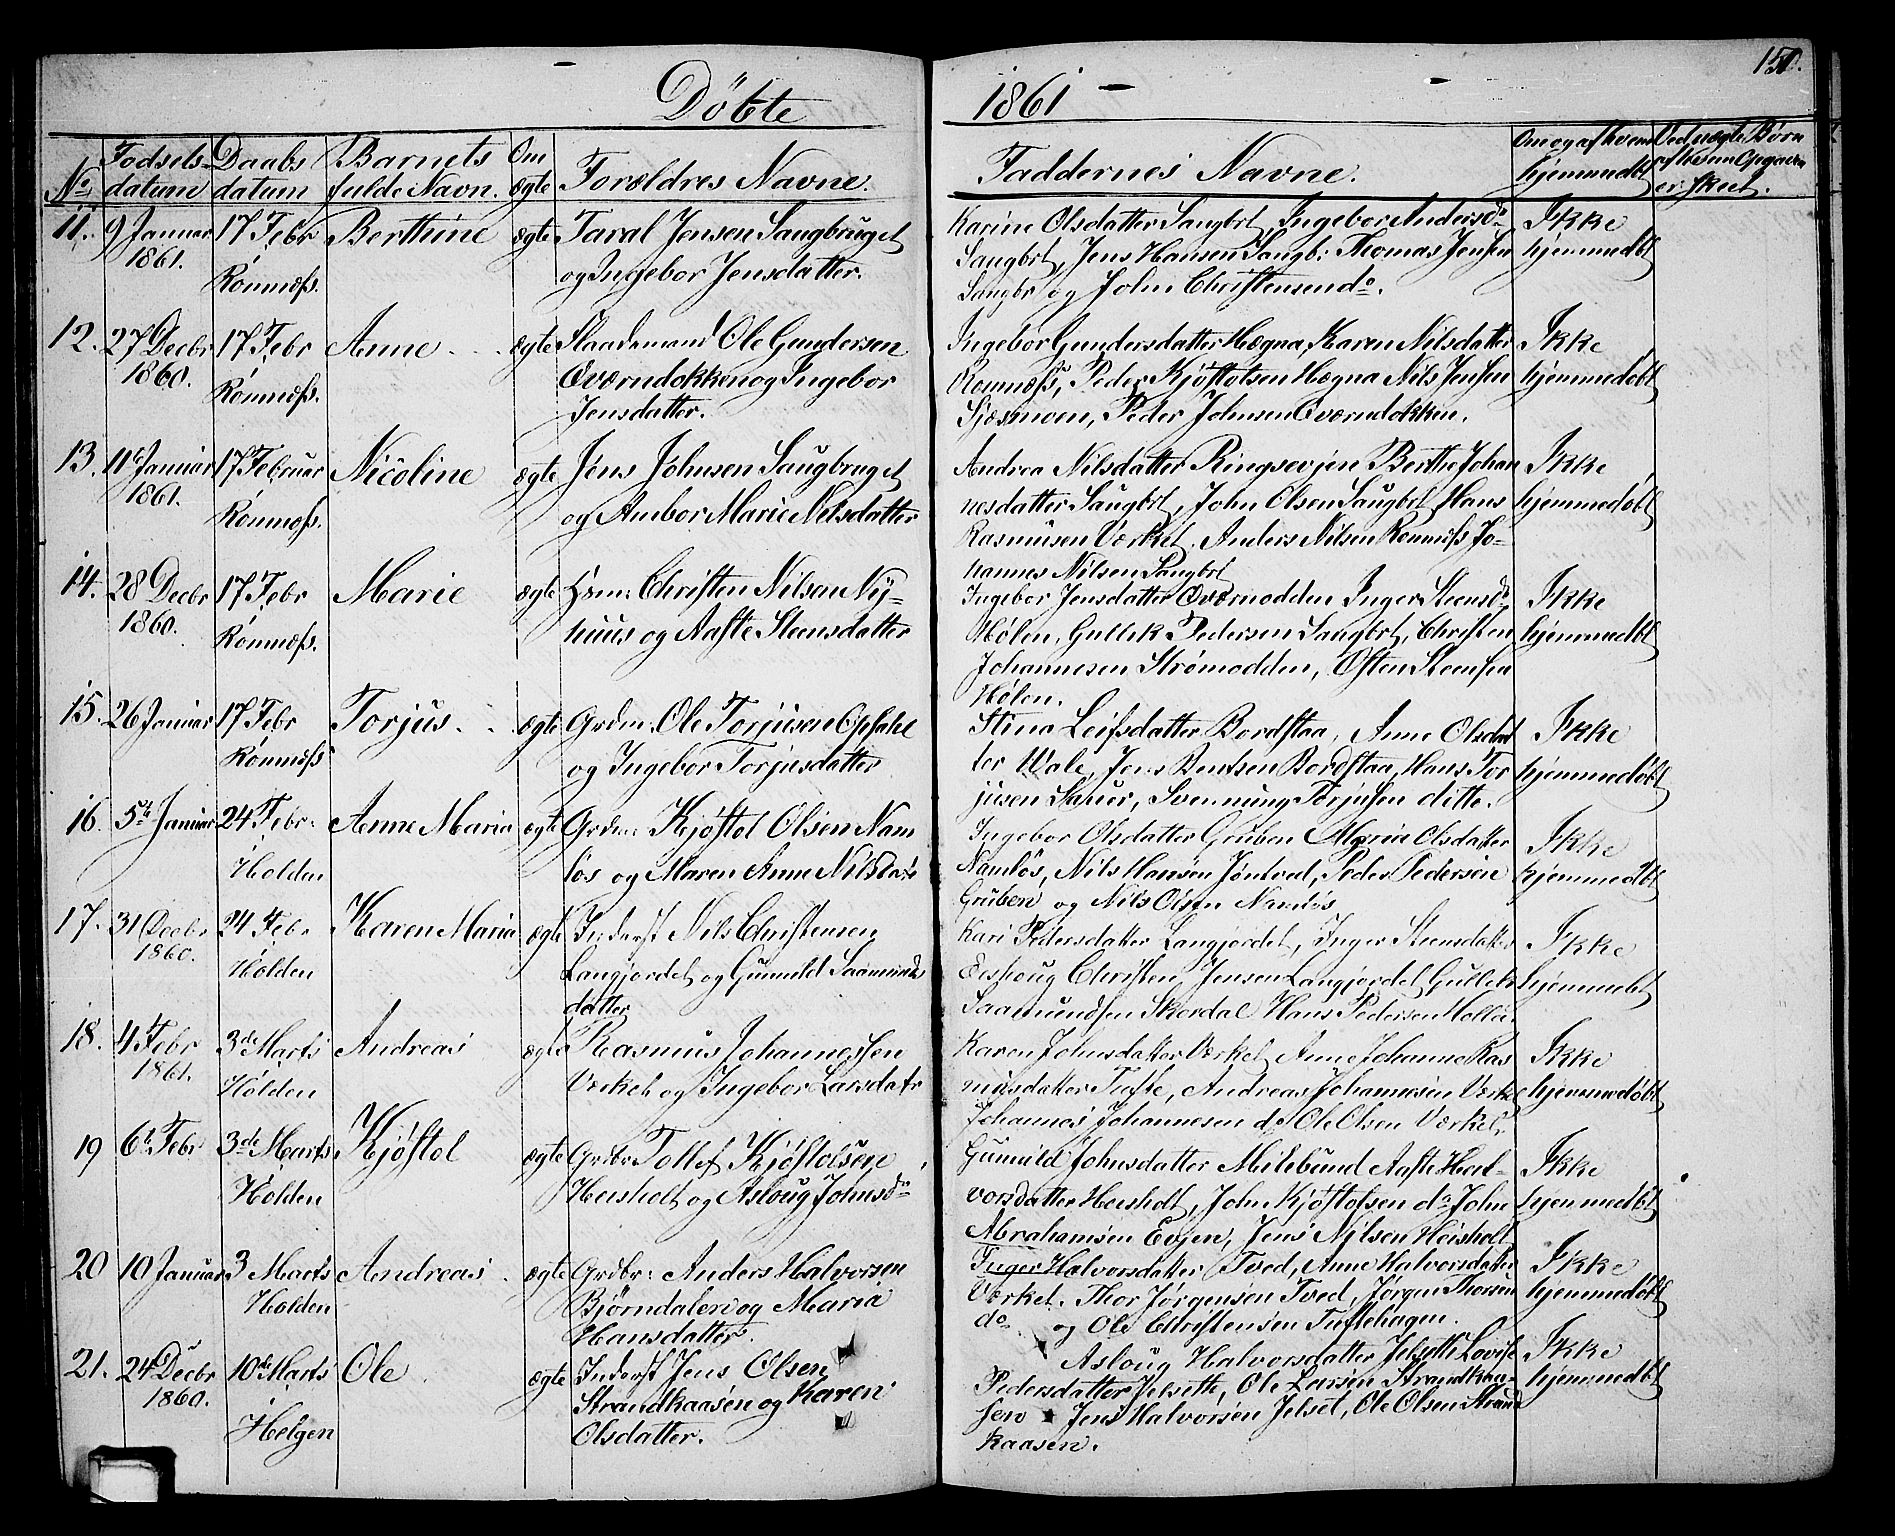 Döbte 1861 150.
No. Fødsels datum Daabs datum Barnets fulde Navn. Om ægte Forældres Navne. Faddernes Navne. Om og af hvem hjemmedøbt Ved uægte Børn af hvem Opgaven er skeet.
11. 9 Januar 1861. 17 Febr Rönnæss. Berthine ægte Taral Jensen Saugbruget
og Ingebor Jensdatter.
Karine Olsdatter Saugbrt, Ingebor Andersd.
Saugbrt, Jens Hansen Saugb: Thomas Jensen
Saugbr og John Christensen do.
Ikke hjemmedøbt
12. 27 Decbr 1860. 17 Febr Rönnæss. Anne ægte Plaadsmand Ole Gundersen
Qværndokken og Ingebor
Jensdatter.
Ingebor Gundersdatter Hægna, Karen Nilsdatter
Rönnæss, Peder Kjöstolsen Hægna Nils Jensen
Sjøsmoen, Peder Johnsen Qværndokken.
Ikke hjemmedøbt
13. 11te Januar 1861. 17 Februar Rönnæss. Nicoline ægte Jens Johnsen Saugbruget
og Ambor Marie Nilsdatter
Andrea Nilsdatter Ringsevjen Berthe Johan
nesdatter Saugbrt, John Olsen Saugbrt Hans
Rasmusen Værket, Anders Nilsen Rönnæss Jo-
hannes Nilsen Saugbrt
Ikke hjemmedøbt
14. 28 Decbr 1860. 17 Febr Rönnæss. Marie ægte Hsm: Christen Nilsen Ny-
huus og Aaste Steensdatter
Ingebor Jensdatter Qværnodden Inger Steensd.
Hölen, Gullik Pedersen Saugbrt, Christen
Johannesen Strömodden, Østen Steensen
Hölen.
Ikke hjemmedøbt
15. 26 Januar 17 Febr Rönnæss Torjus ægte Grdm: Ole Torjusen Opsahl
og Ingebor Torjusdatter
Stina Leifsdatter Bordstaa, Anne Olsdat
ter Vale, Jens Bentsen Bordstaa, Hans Tor
jusen Sauer, Svennung Torjusen ditto.
Ikke hjemmedøbt
16. 5te Januar 24 Febr: Holden Anne Maria ægte Grdm: Kjöstol Olsen Nam
lös og Maren Anne Nilsdatr
Ingebor Olsdatter Gruben Maria Olsdatter
Namlös, Nils Hansen Jöntved, Peder Pedersen
Gruben og Nils Olsen Namlös
Ikke hjemmedøbt
17. 31 Decbr 1860. 24 Febr Holden Karen Maria ægte Inderst Nils Christensen
Langjordet og Gunnild Saamunds
datter
Kari Pedersdatter Langjordet, Inger Steensdatter
Christen Jensen Langjordet Gullik
Saamundsen Skordal Hans Pedersen Holla.
Ikke hjemmebt
18. 4 Febr 1861. 3de Marts Holden Andreas ægte Rasmus Johannessen
Værket og Ingebor Larsdatr
Karen Johnsdatter Værket Anne Johanne Ras
musdatter Tufte, Andreas Johannesen Værket
Johannes Johannesen do Ole Olsen Værket.
Ikke hjemmedøbt
19 6te Febr 3de Marts Holden Kjöstol ægte Grdbr Tollef Kjöstolsen
Heisholt og Asloug Johnsdr
Gunnild Johnsdatter Milebund Aaste Hal-
vorsdatter Heisholt, John Kjöstolsen do John
Abrahamsen Evjen, Jens Nilsen Heisholt
Ikke hjemmedøbt
20 10 Januar 3 Marts Holden Andreas ægte Grdbr: Anders Halvorsen
Bjørndalen og Maria
Hansdatter.
Inger Halvorsdatter Tved, Anne Halvorsdatter
Værket. Thor Jörgensen Tved, Jörgen Thorsen
do og Ole Christensen Tuftehagen.
Ikke hjemmedøbt
21. 24 Decbr 1860. 10de Marts i Helgen Ole ægte Inderst Jens Olsen
Strandkaasen og Karen
Olsdatter.
Asloug Halvorsdatter Jelsett Lovise
Pedersdatter Jelsette, Ole Larsen Strandkaa-
sen Jens Halvorsen Jelset, Ole Olsen Strand
kaasen.
Ikke hjemmedøbt